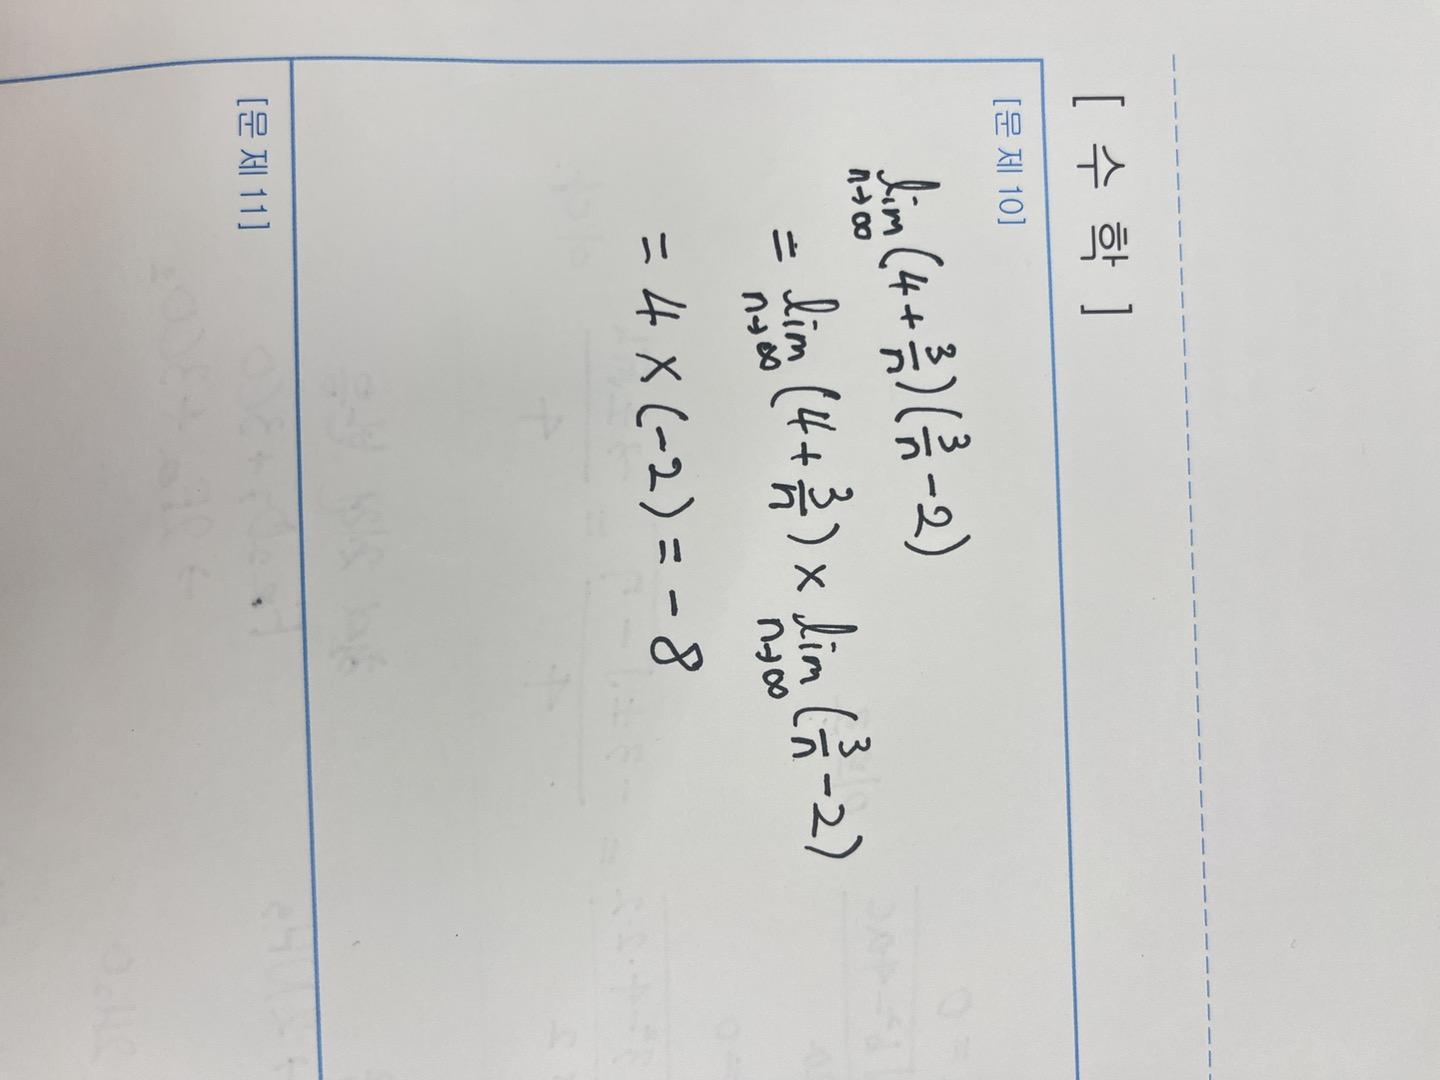 [ 수 학 ]
[문 제 10]
lim n→∞ (4 + 3/n)(3/n - 2)
= lim n→∞ (4 + 3/n) × lim n→∞ (3/n - 2)
= 4 × (-2) = -8
[문 제 11]